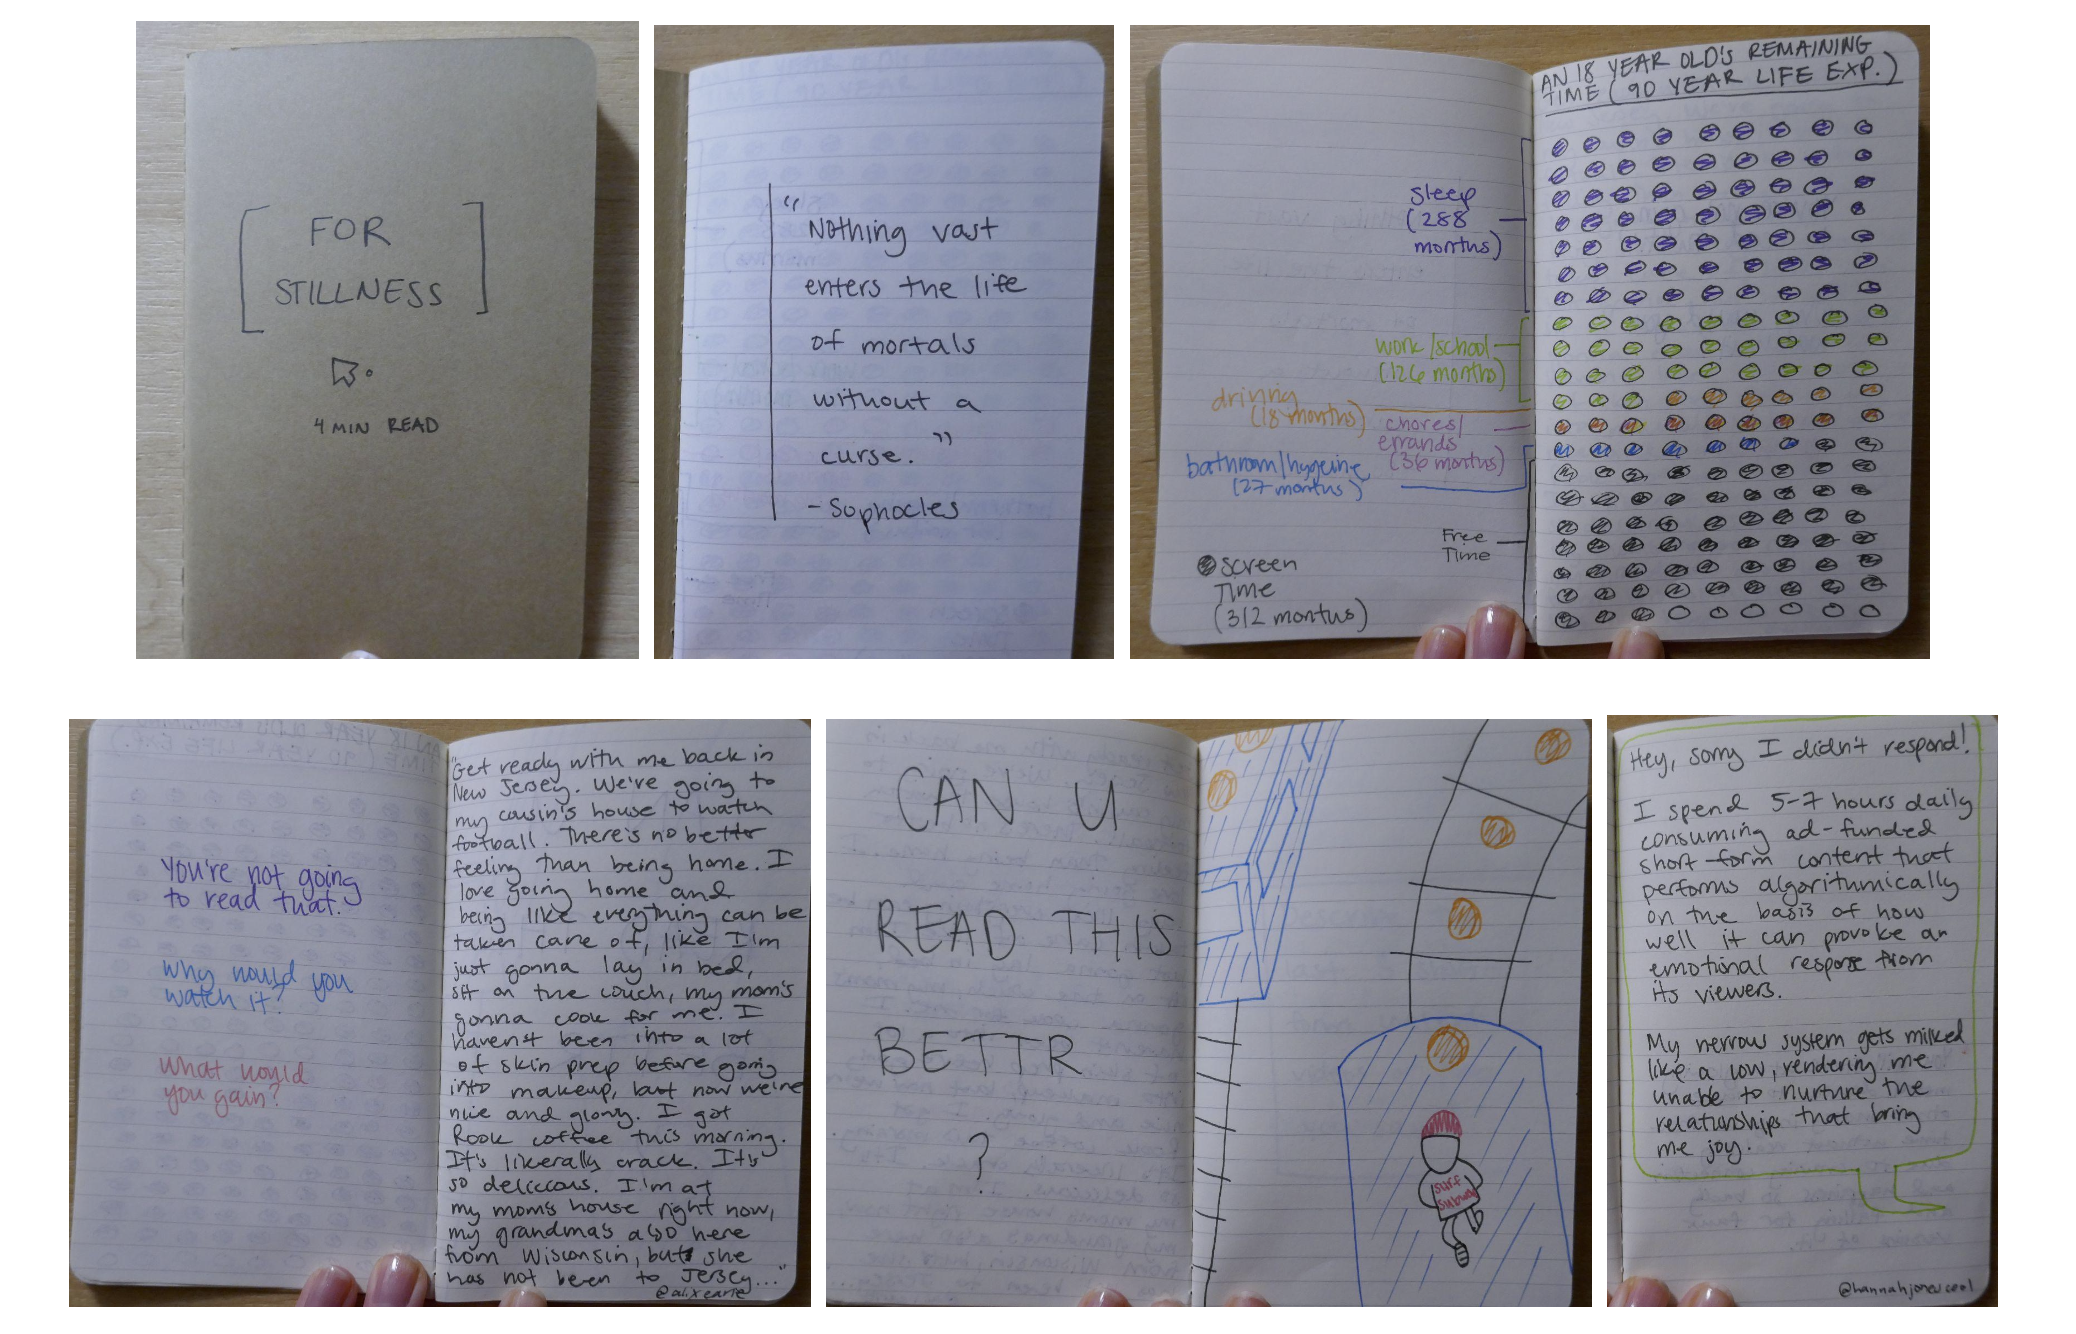 FOR
STILLNESS
4 MIN READ
"Nothing vast
enters the life
of mortals
without a
curse."
- Sophocles
AN 18 YEAR OLD'S REMAINING
TIME (90 YEAR LIFE EXP.)
sleep
(288
months)
work/school
(126 months)
driving
(18 months)
chores/
errands
(36 months)
bathroom/hygeine
(27 months)
Free
Time
screen
Time
(312 months)
You're not going
to read that.
Why would you
watch it?
What would
you gain?
"Get ready with me back in
New Jersey. We're going to
my cousin's house to watch
football. There's no better
feeling than being home. I
love going home and
being like everything can be
taken care of, like I'm
just gonna lay in bed,
sit on the couch, my mom's
gonna cook for me. I
haven't been into a lot
of skin prep before going
into makeup, but now we're
nice and glowy. I got
Rook coffee this morning.
It's likerally crack. It's
so delicious. I'm at
my mom's house right now,
my grandma's also here
from Wisconsin, but she
has not been to Jersey..."
@alixearle
CAN U
READ THIS
BETTR
?
SURF
SUBWAY
Hey, sorry I didn't respond!
I spend 5-7 hours daily
consuming ad-funded
short-form content that
performs algorithmically
on the basis of how
well it can provoke an
emotional response from
its viewers.
My nervous system gets milked
like a cow, rendering me
unable to nurture the
relationships that bring
me joy.